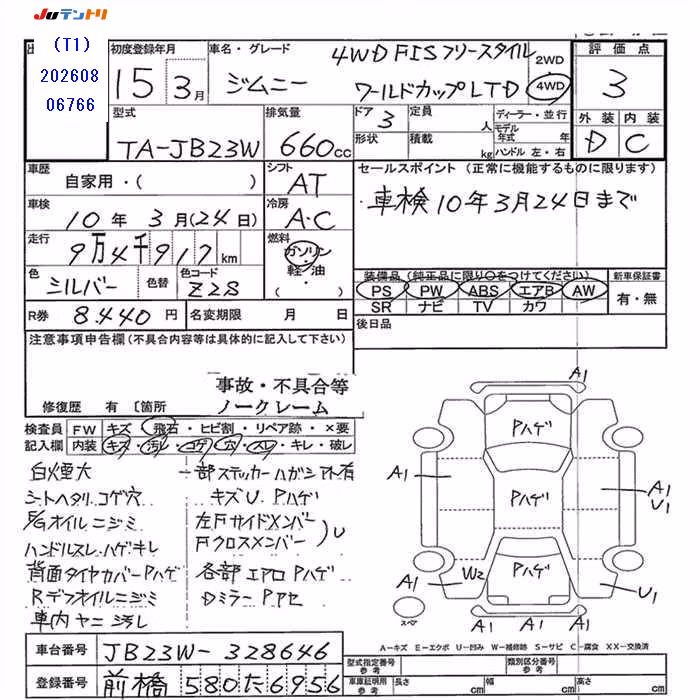 JUテントリ
(T1)
202608
06766
初度登録年月
15 3月
車名・グレード
ジムニー
4WD FISフリースタイル
ワールドカップLTD
2WD
4WD
評価点
3
外装 内装
D C
型式
TA-JB23W
排気量
660cc
ドア 3
定員 人
形状
積載 kg
ディーラー・並行
モデル年式 年
ハンドル 左・右
車歴
自家用・( )
シフト
AT
セールスポイント (正常に機能するものに限ります)
車検10年3月24日まで
車検
10年 3月(24日)
冷房
A・C
走行
9万4千917km
燃料
ガソリン
・
軽・油
( )
色
シルバー
色替
色コード
Z2S
装備品(純正品に限り○をつけてください)
PS PW ABS エアB AW
SR ナビ TV カワ
新車保証書
有・無
R券 8,440円
名変期限 月 日
後日品
注意事項申告欄(不具合内容等は具体的に記入して下さい)
事故・不具合等
修復歴 有 〔箇所
ノークレーム
検査員 FW キズ・飛石・ヒビ割・リペア跡・×要
記入欄 内装 キズ・汚レ・コゲ・穴・スレ・キレ・破レ
白煙大
シートヘタリ コゲ穴
E/Gオイルニジミ
ハンドルスレ ハゲキレ
背面タイヤカバーPハゲ
Rデフオイルニジミ
車内ヤニ汚レ
一部ステッカーハガシアト有
キズU Pハゲ
左Fサイドメンバー
Fクロスメンバー )U
各部エアロPハゲ
DミラーPアセ
A1
Pハゲ
A1
Pハゲ
A1
U1
A1
W2
Pハゲ
U1
スペア
A1 A1 A1
A-キズ E-エクボ U-凹み W-補修跡 S-サビ C-腐食 XX-交換済
車台番号 JB23W-328646
登録番号 前橋 580た6956
型式指定番号
参考
類別区分番号
参考
車庫証明用
参考
長さ cm
幅 cm
高さ cm